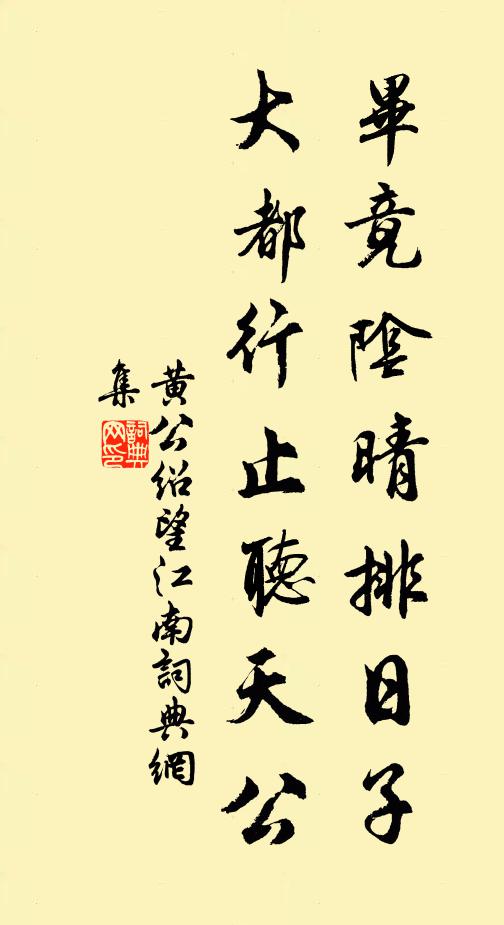 畢竟陰晴排日子
大都行止聽天公
黃公紹望江南詞典網
集
詞典
网印